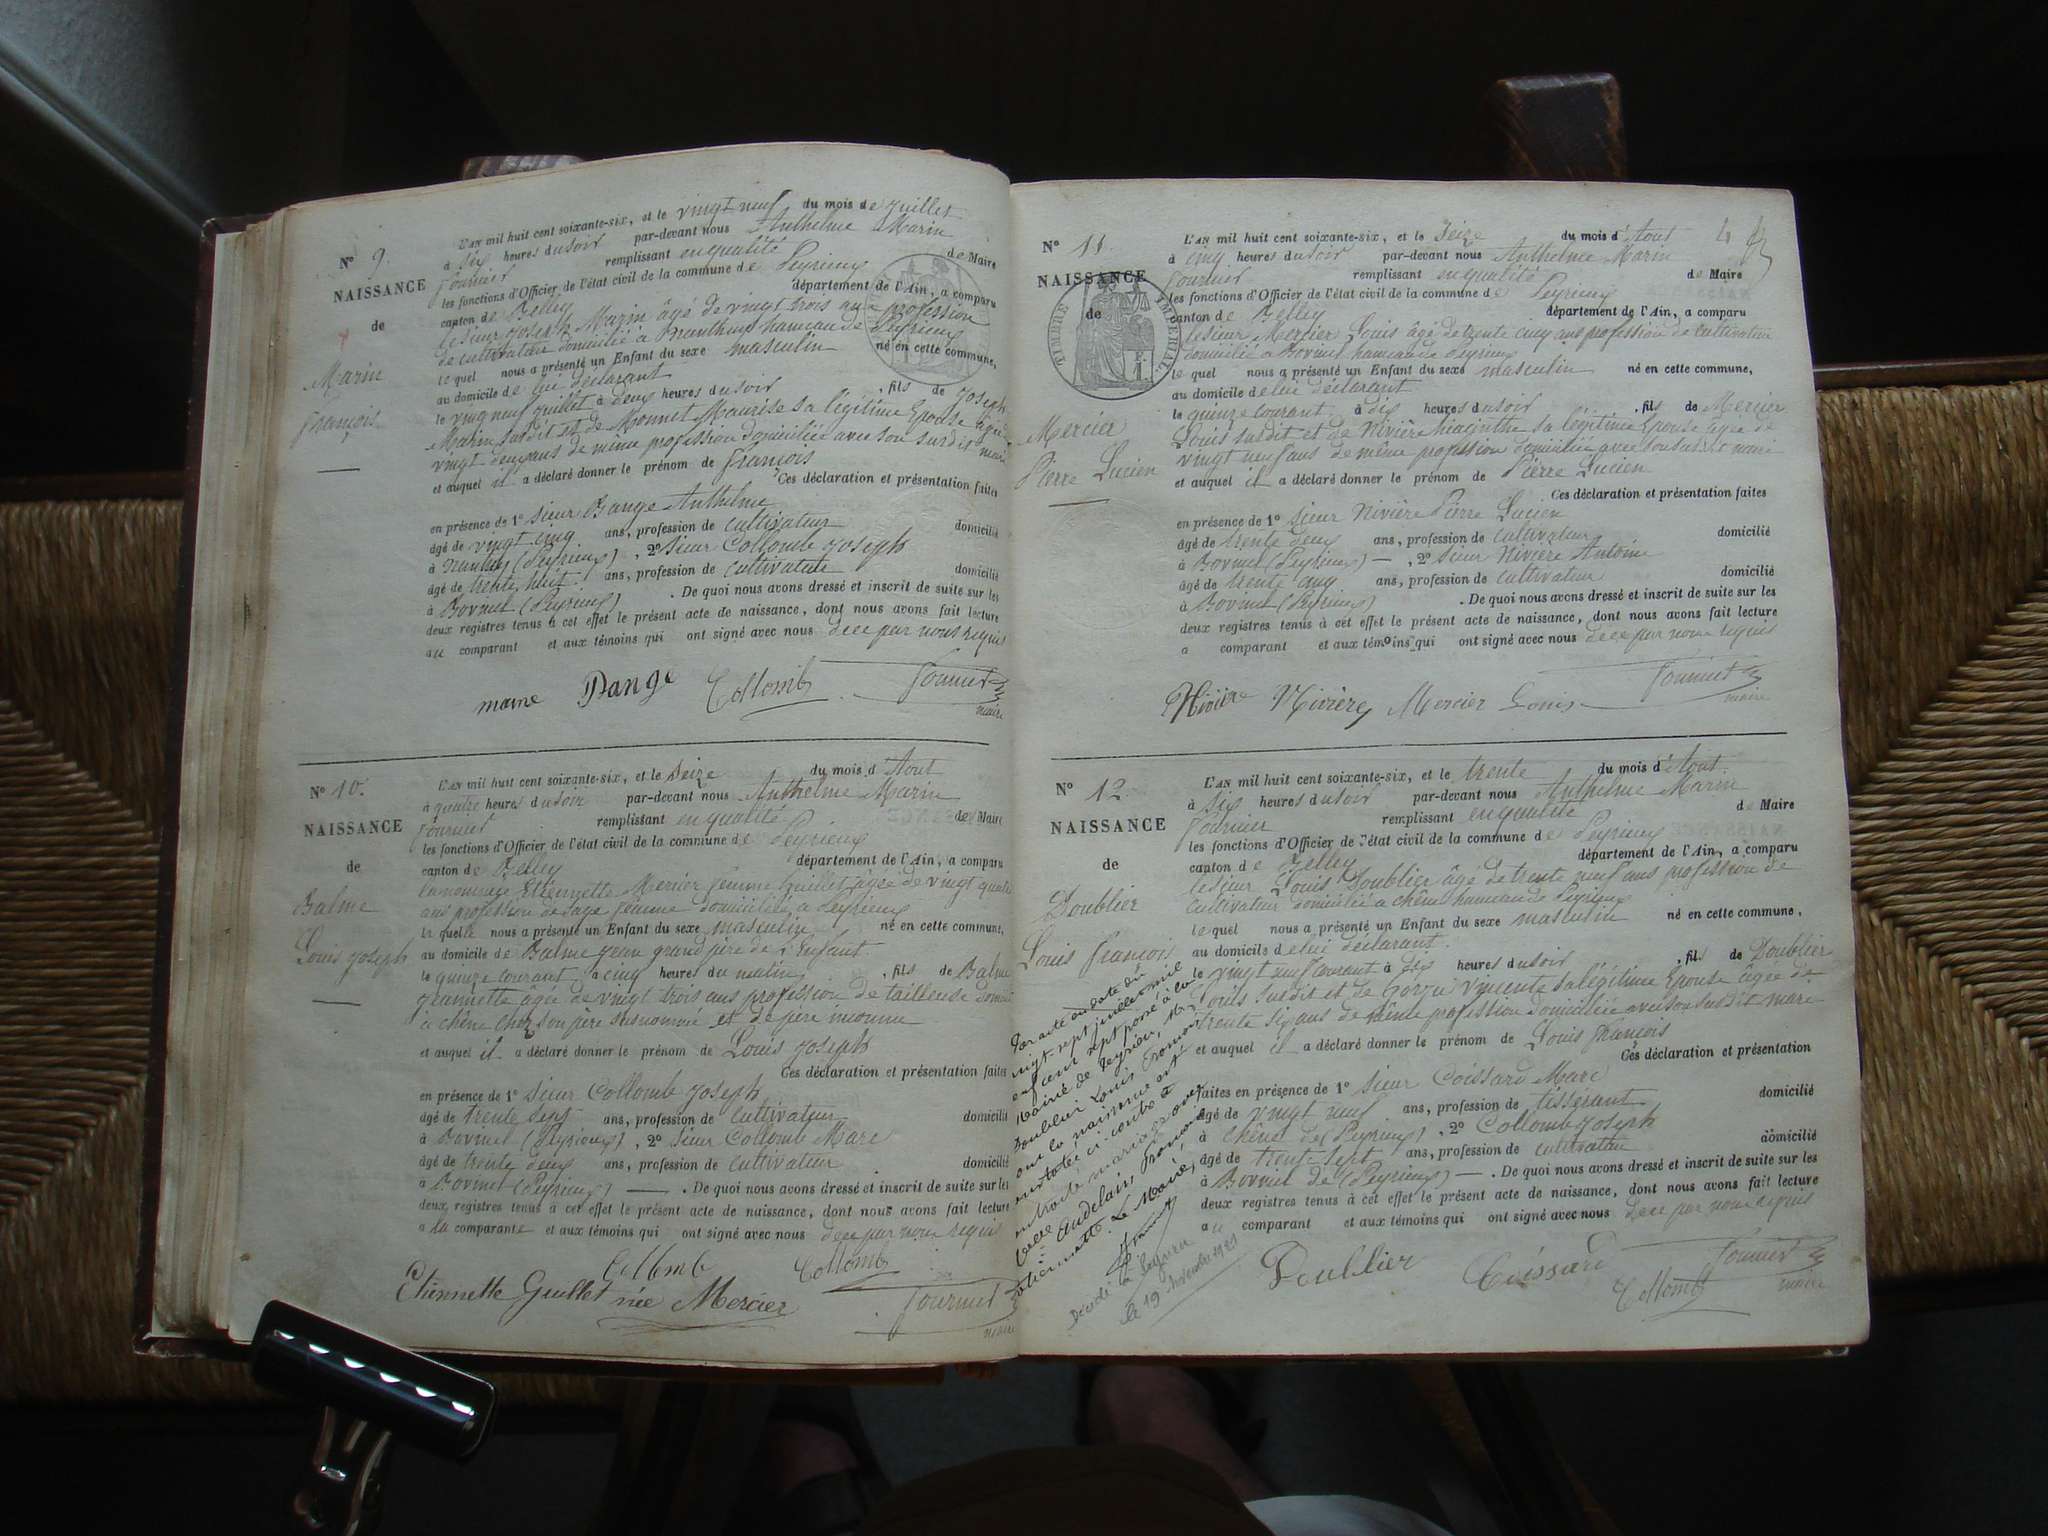 N° 9.
NAISSANCE
de
Marin
François
L'AN mil huit cent soixante-six, et le vingt neuf du mois de juillet
à six heures du soir par-devant nous Anthelme Marin
Fournier remplissant en qualité de Maire
les fonctions d'Officier de l'état civil de la commune de Peyrieux
canton de Belley département de l'Ain, a comparu
le sieur Joseph Marin âgé de vingt trois ans profession
de cultivateur domicilié à hameau de Peyrieux
le quel nous a présenté un Enfant du sexe masculin né en cette commune,
au domicile de lui déclarant
le vingt neuf juillet à deux heures du soir , fils de Joseph
Marin susdit et de Monnet Maurise sa légitime Epouse âgée de
vingt deux ans de même profession domiciliée avec son susdit mari
et auquel il a déclaré donner le prénom de François
Ces déclaration et présentation faites
en présence de 1° sieur Dange Anthelme
âgé de vingt cinq ans, profession de cultivateur domicilié
à (Peyrieux) , 2° sieur Collomb Joseph
âgé de trente huit ans, profession de cultivateur domicilié
à Bovinel (Peyrieux) . De quoi nous avons dressé et inscrit de suite sur les
deux registres tenus à cet effet le présent acte de naissance, dont nous avons fait lecture
au comparant et aux témoins qui ont signé avec nous de ce par nous requis
Dange Collomb Fournier
maire
N° 10.
NAISSANCE
de
Balme
Louis Joseph
L'AN mil huit cent soixante-six, et le seize du mois d'Aout
à quatre heures du soir par-devant nous Anthelme Marin
Fournier remplissant en qualité de Maire
les fonctions d'Officier de l'état civil de la commune de Peyrieux
canton de Belley département de l'Ain, a comparu
la nommée Etiennette Mercier femme Guillet âgée de vingt quatre
ans profession de sage femme domiciliée à Peyrieux
la quelle nous a présenté un Enfant du sexe masculin né en cette commune,
au domicile de Balme Jean grand père de l'Enfant.
le quinze courant à cinq heures du matin , fils de Balme
Jeannette âgée de vingt trois ans profession de tailleuse domiciliée
à chêne chez son père susnommé et de père inconnu
et auquel il a déclaré donner le prénom de Louis Joseph
Ces déclaration et présentation faites
en présence de 1° sieur Collomb Joseph
âgé de trente sept ans, profession de cultivateur domicilié
à Bovinel (Peyrieux) , 2° sieur Collomb Marc
âgé de trente deux ans, profession de cultivateur domicilié
à Bovinel (Peyrieux) — . De quoi nous avons dressé et inscrit de suite sur les
deux registres tenus à cet effet le présent acte de naissance, dont nous avons fait lecture
a la comparante et aux témoins qui ont signé avec nous de ce par nous requis
Collomb Collomb
Etiennette Guillet née Mercier Fournier
maire
N° 11.
NAISSANCE
de
TIMBRE IMPERIAL
Mercier
Pierre Lucien
L'AN mil huit cent soixante-six, et le seize du mois d'Aout
à cinq heures du soir par-devant nous Anthelme Marin
Fournier remplissant en qualité de Maire
les fonctions d'Officier de l'état civil de la commune de Peyrieux
canton de Belley département de l'Ain, a comparu
le sieur Mercier Louis âgé de trente cinq ans profession de cultivateur
domicilié à Bovinel hameau de Peyrieux
le quel nous a présenté un Enfant du sexe masculin né en cette commune,
au domicile de lui déclarant
le quinze courant à dix heures du soir , fils de Mercier
Louis susdit et de Nivière hiacinthe sa légitime Epouse âgée de
vingt neuf ans de même profession domiciliée avec son susdit mari
et auquel il a déclaré donner le prénom de Pierre Lucien
Ces déclaration et présentation faites
en présence de 1° sieur Nivière Pierre Lucien
âgé de trente deux ans, profession de cultivateur domicilié
à Bovinel (Peyrieux) — , 2° sieur Nivière Antoine
âgé de trente cinq ans, profession de cultivateur domicilié
à Bovinel (Peyrieux) . De quoi nous avons dressé et inscrit de suite sur les
deux registres tenus à cet effet le présent acte de naissance, dont nous avons fait lecture
a comparant et aux témoins qui ont signé avec nous de ce par nous requis
Nivière Nivière Mercier Louis Fournier
maire
N° 12.
NAISSANCE
de
Doublier
Louis François
Par acte en date du
vingt sept juillet mil
neuf cent sept passé à la
Mairie de Peyrieu, Mr
Doublier Louis François
dont la naissance est
constatée ci-contre a
contracté mariage avec
Andelain Françoise
Etiennette. Le Maire,
Décédé à Peyrieu
le 19 novembre 1921
L'AN mil huit cent soixante-six, et le trente du mois d'Aout
à six heures du soir par-devant nous Anthelme Marin
Fournier remplissant en qualité de Maire
les fonctions d'Officier de l'état civil de la commune de Peyrieux
canton de Belley département de l'Ain, a comparu
le sieur Louis Doublier âgé de trente neuf ans profession de
cultivateur domicilié à chêne hameau de Peyrieux
le quel nous a présenté un Enfant du sexe masculin né en cette commune,
au domicile de lui déclarant.
le vingt neuf courant à dix heures du soir , fils de Doublier
Louis susdit et de vincente sa légitime Epouse âgée de
trente six ans de même profession domiciliée avec son susdit mari
et auquel il a déclaré donner le prénom de Louis François
Ces déclaration et présentation
faites en présence de 1° sieur Coissard Marc
âgé de vingt neuf ans, profession de tisserant domicilié
à chêne de (Peyrieux) , 2° Collomb Joseph
âgé de trente sept ans, profession de cultivateur domicilié
à Bovinel de (Peyrieux) — . De quoi nous avons dressé et inscrit de suite sur les
deux registres tenus à cet effet le présent acte de naissance, dont nous avons fait lecture
au comparant et aux témoins qui ont signé avec nous de ce par nous requis
Doublier Coissard Collomb Fournier
maire